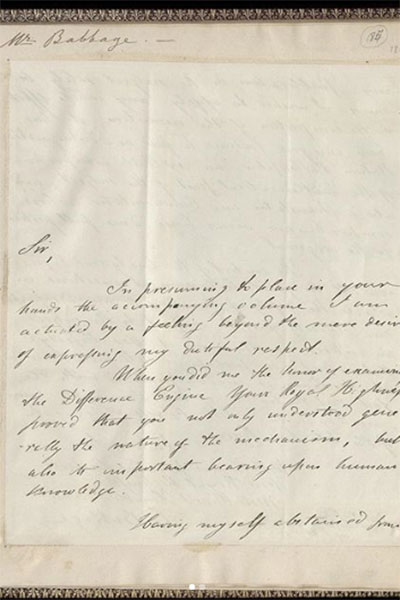 Mr. Babbage. —
Sir,
In presuming to place in your
hands the accompanying volume I am
actuated by a feeling beyond the mere desir
of expressing my dutiful respect.
When you did me the honor of examinin
the Difference Engine Your Royal Highness
proved that you not only understood gene
rally the nature of the mechanism, but
also its important bearing upon human
knowledge.
Having myself abstained from